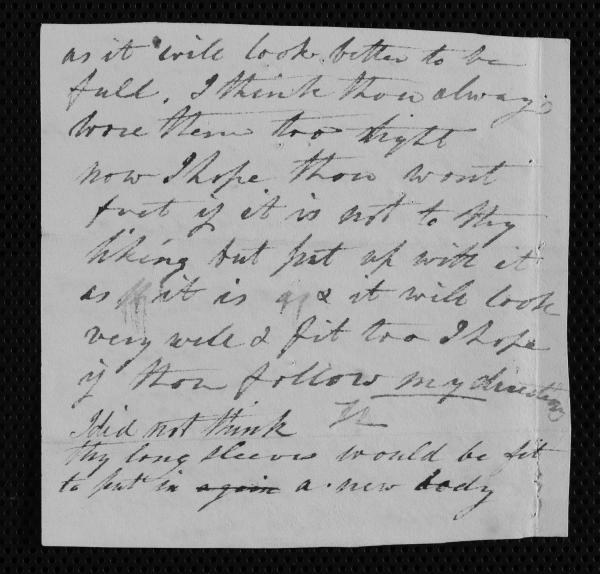 as it will look better to be
full. I think thou always
wore them too tight
now I hope thou wont
fret if it is not to thy
liking but put up with it
as it is & it will look
very well & fit too I hope
if thou follow my directions
I did not think
thy long sleeves would be fit
to put in again a new body